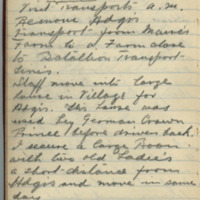 Visit Transports a.m.
Remove Hdqrs
Transport from Marais
Farm to a Farm close
to Battalion Transport
Lines.
Staff move into large
house in Village for
Hdqrs. This house was
used by German Crown
Prince before driven back.
I secure a large Room
with two old Ladie's
a short distance from
Hdqrs and move in same
day